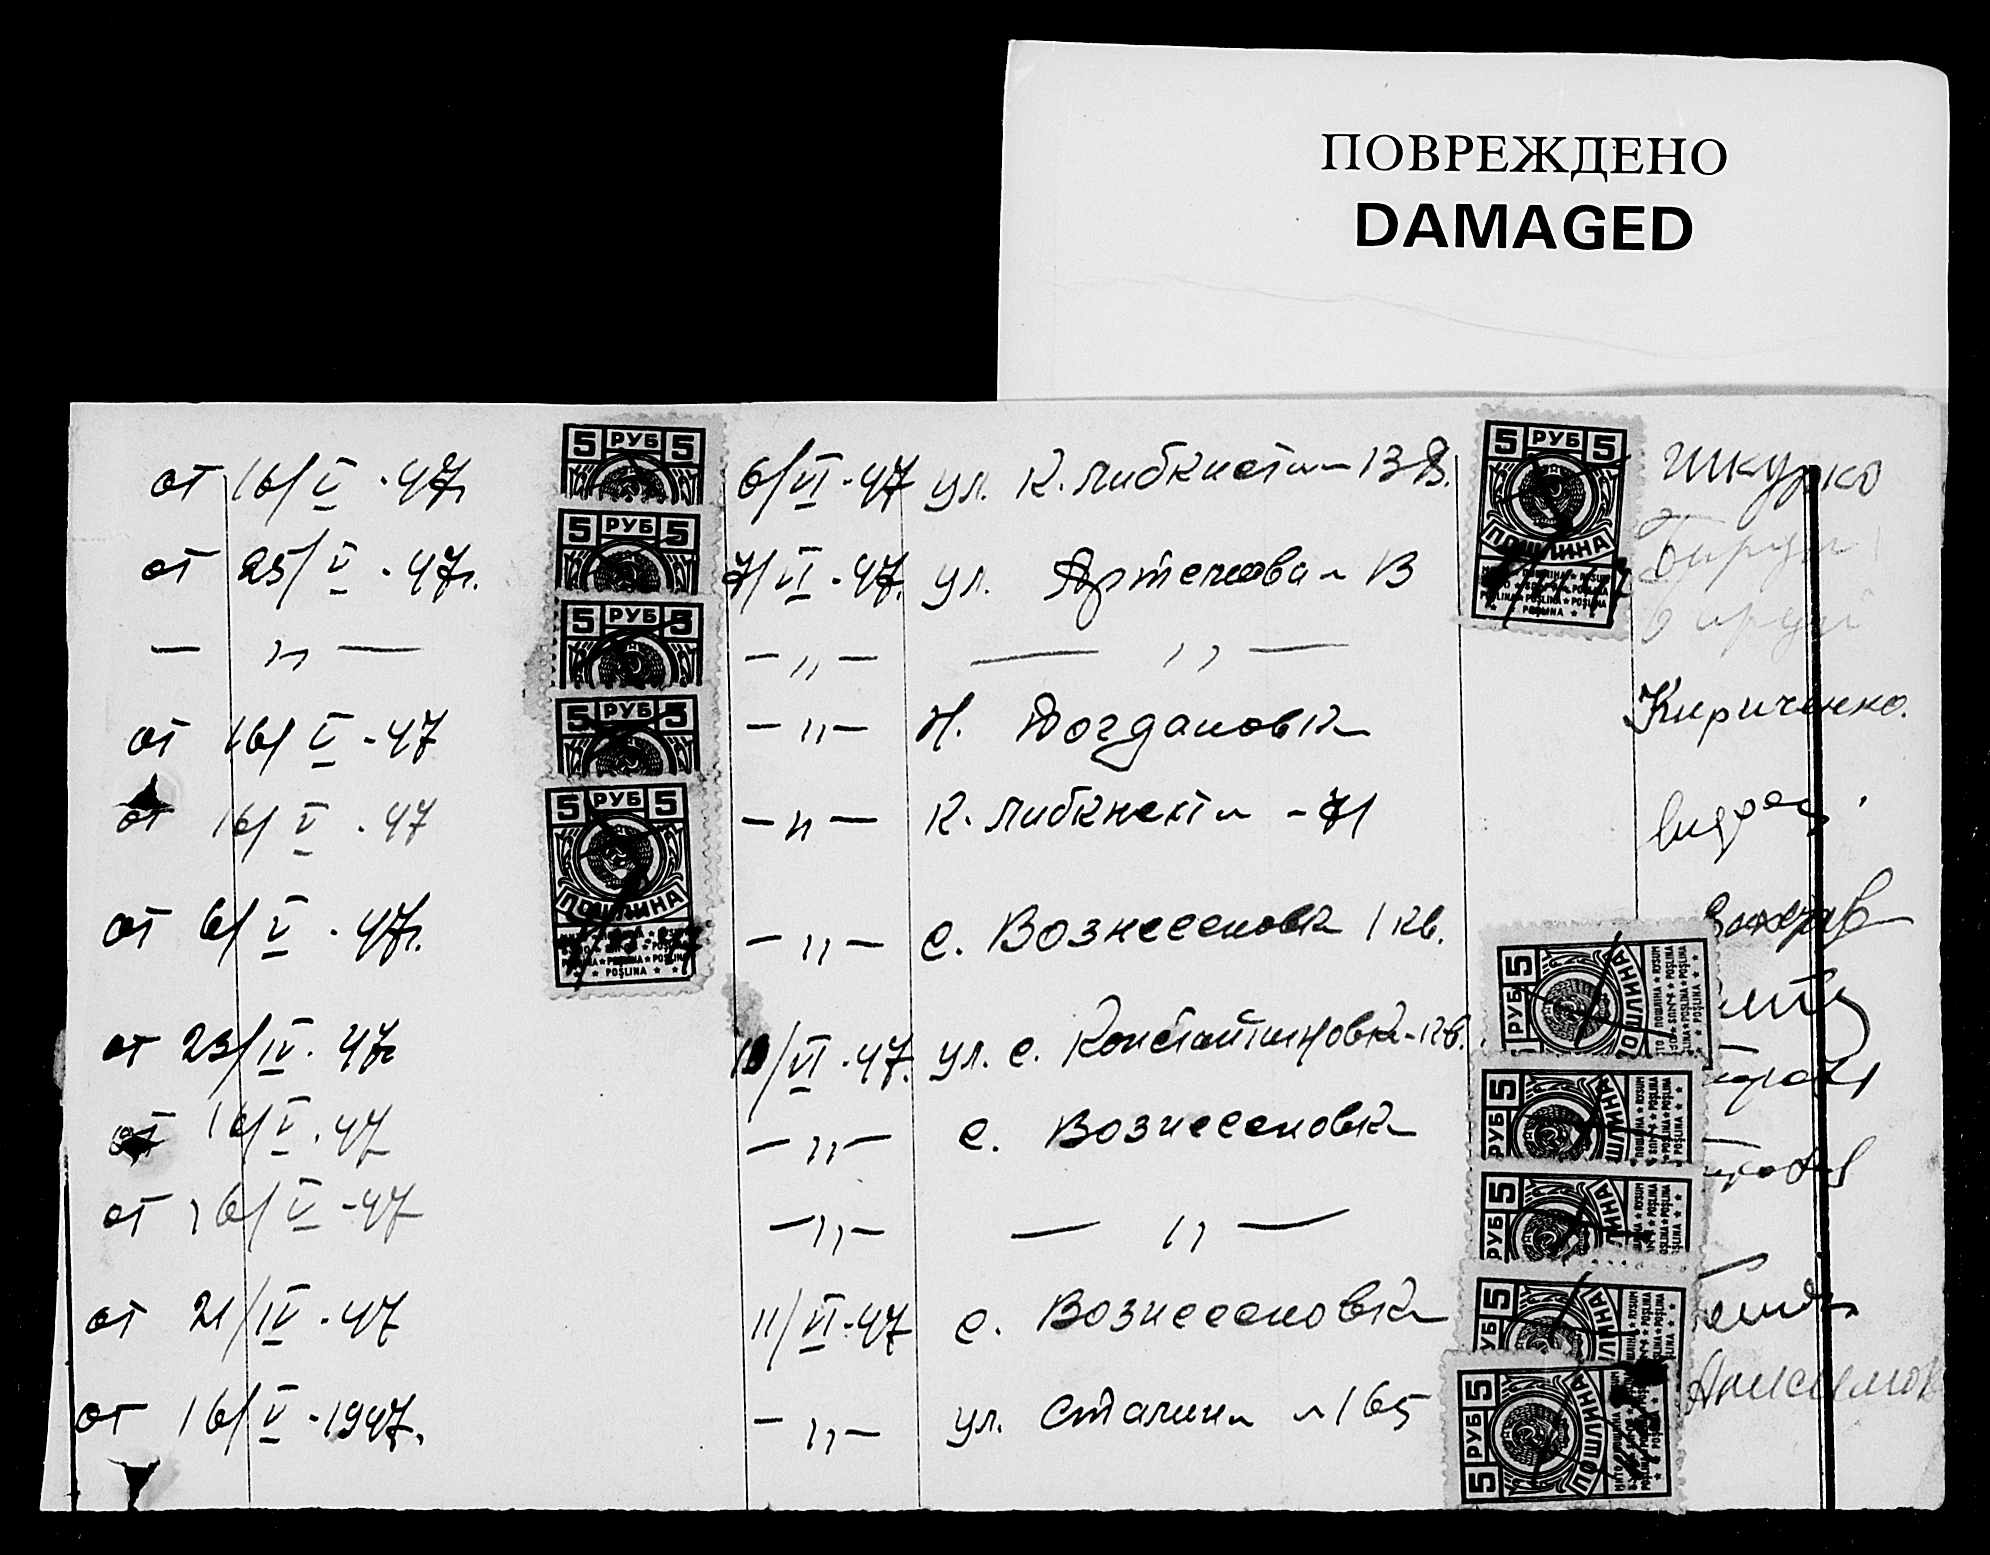 ПОВРЕЖДЕНО
DAMAGED
от 16/V-47г. 5 РУБ 5 6/VI-47 ул. К. Либкнехта 5 РУБ 5 ПОШЛИНА Шкурко
от 25/V-47г. 5 РУБ 5 7/VI-47. ул. Артемова
— „ — 5 РУБ 5 — „ — — „ —
от 16/V-47 5 РУБ 5 — „ — Н. Богдановка Кириченко.
от 16/V-47 5 РУБ 5 ПОШЛИНА POŞLINA — „ — К. Либкнехта - 71
от 6/V-47г. — „ — с. Вознесеновка 1 кв.
от 23/IV-47г 10/VI-47. ул. с. Константиновка-кв. 5 РУБ 5 ПОШЛИНА
от 16/V-47 — „ — с. Вознесеновка 5 РУБ 5
от 16/V-47 — „ — — „ — 5 РУБ 5
от 21/IV-47 11/VI-47 с. Вознесеновка 5 РУБ 5
от 16/V-1947. — „ — ул. Сталина 165 5 РУБ 5 ПОШЛИНА Анисимов